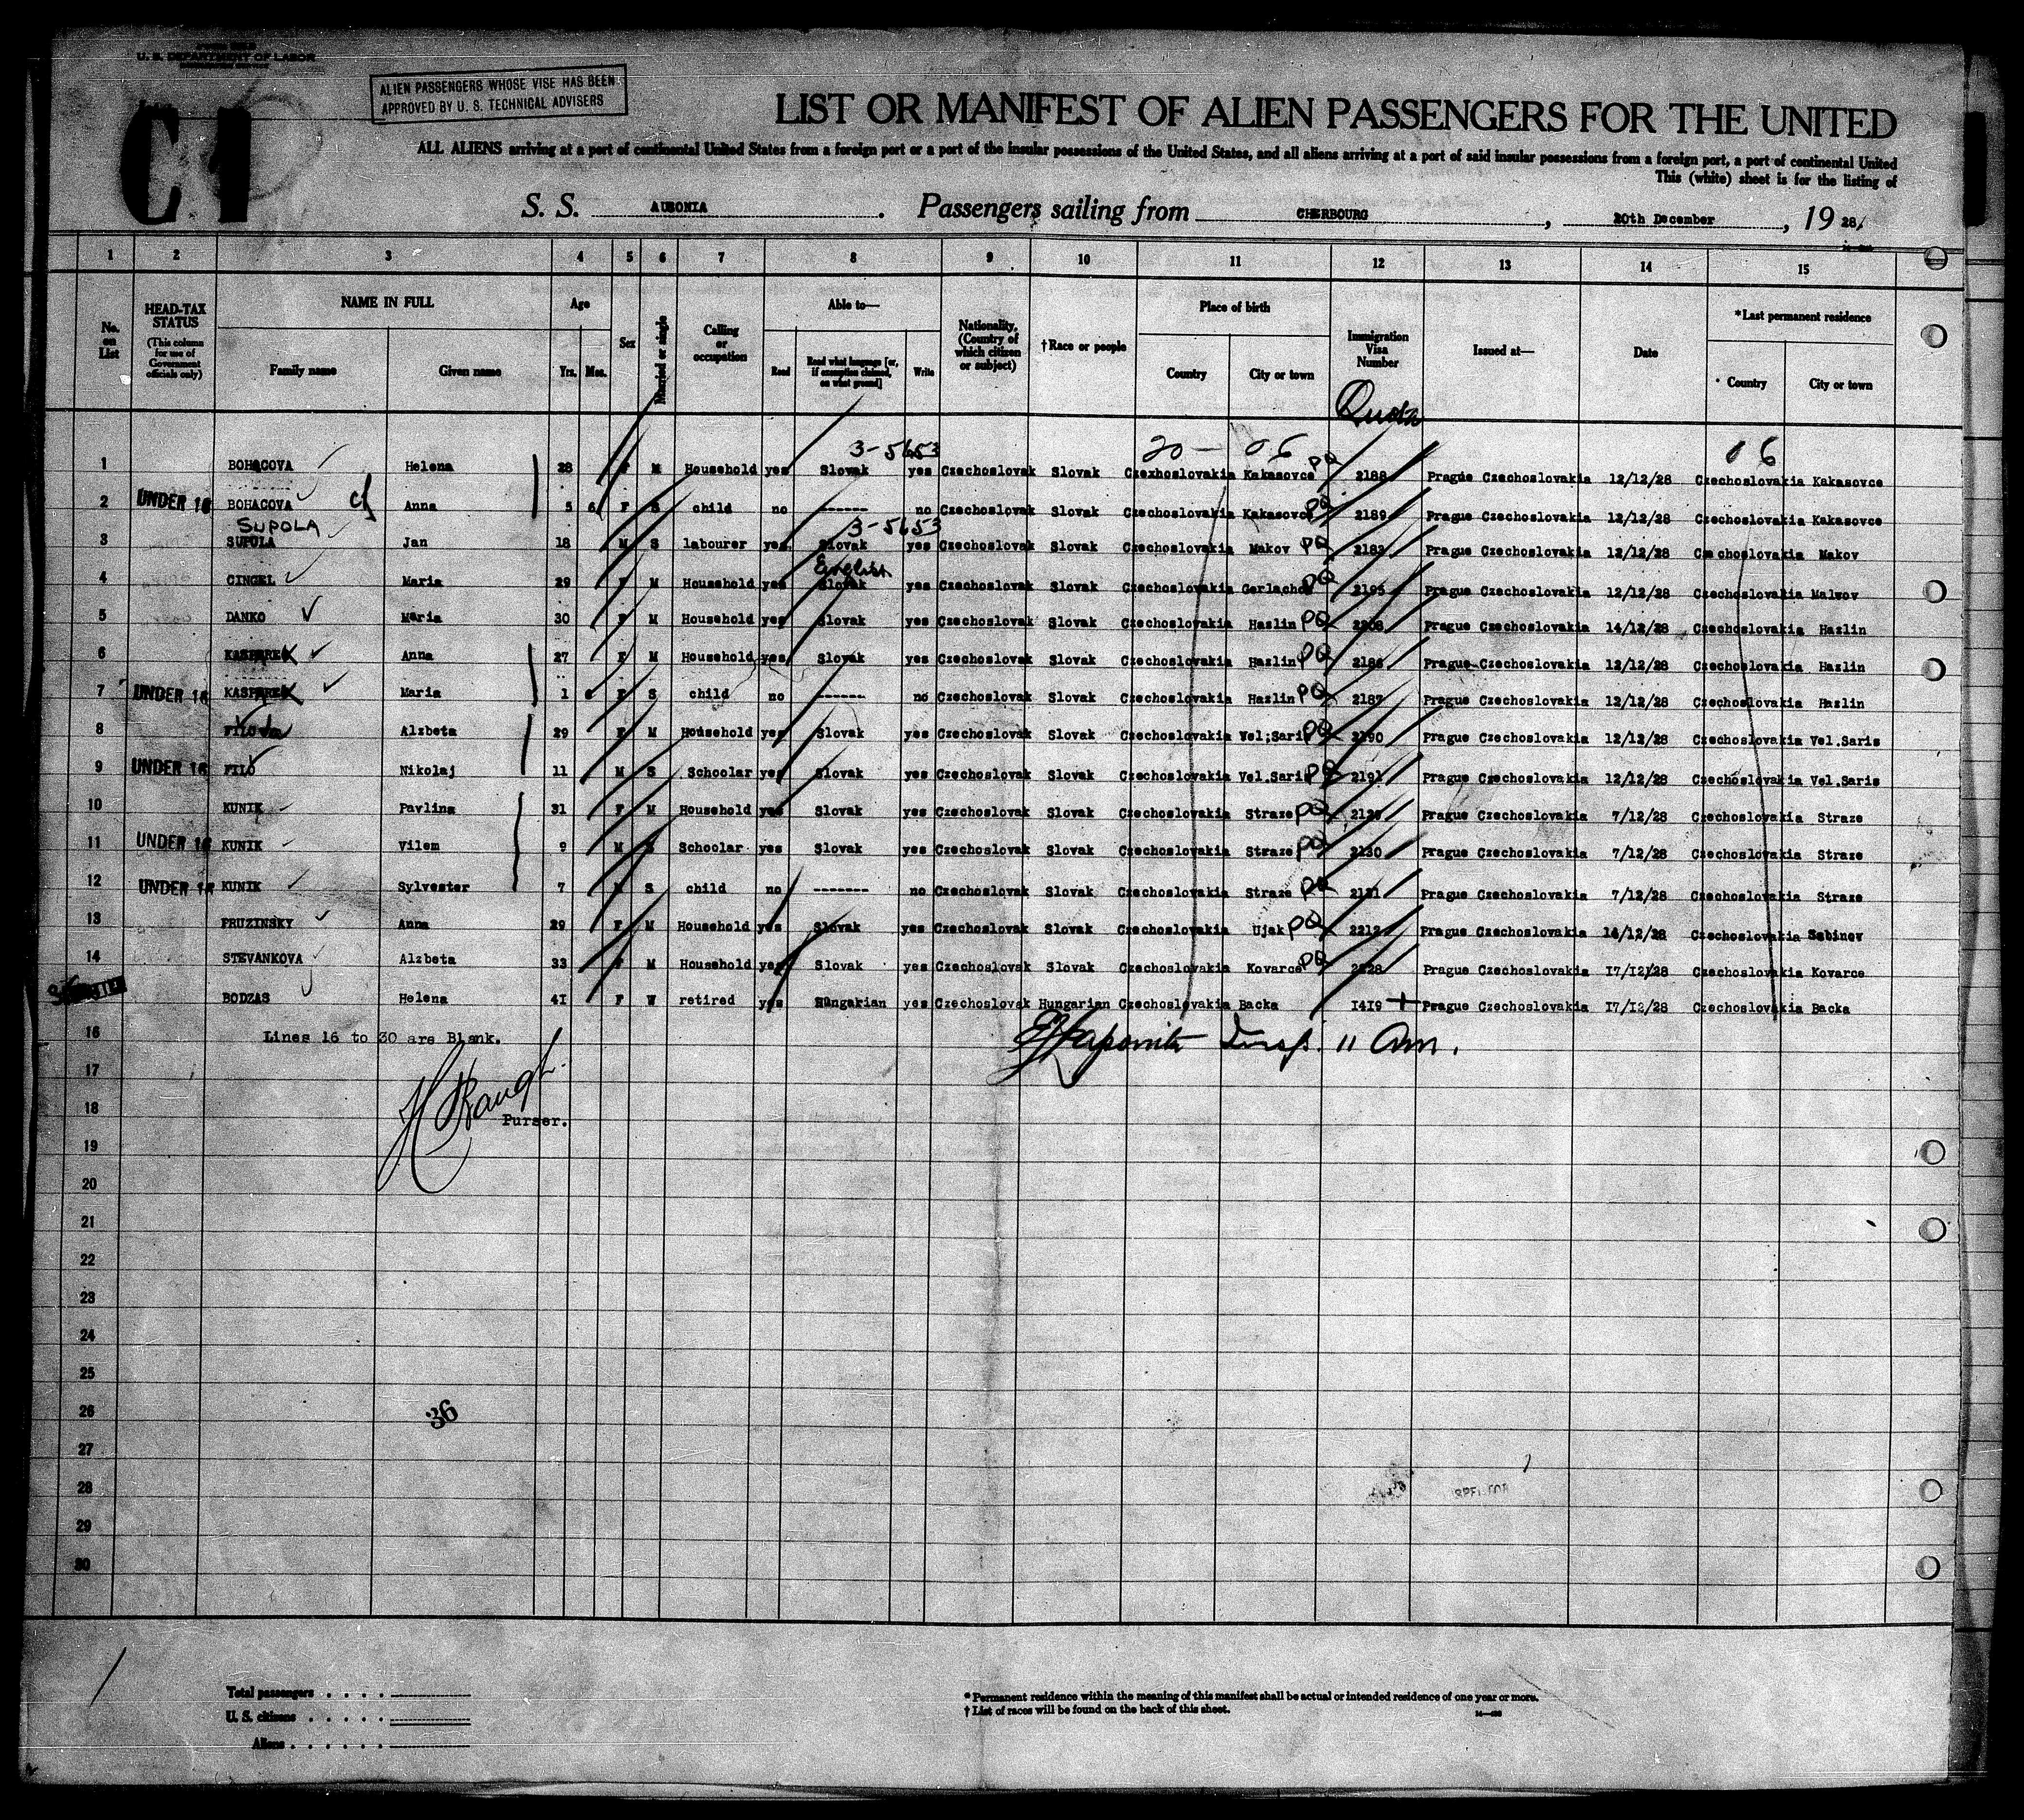 U. S. DEPARTMENT OF LABOR
C 1
ALIEN PASSENGERS WHOSE VISE HAS BEEN
APPROVED BY U. S. TECHNICAL ADVISERS
LIST OR MANIFEST OF ALIEN PASSENGERS FOR THE UNITED
ALL ALIENS arriving at a port of continental United States from a foreign port or a port of the insular possessions of the United States, and all aliens arriving at a port of said insular possessions from a foreign port, a port of continental United
This (white) sheet is for the listing of
S. S. AUSONIA. Passengers sailing from CHERBOURG, 20th December, 1928
1 2 3 4 5 6 7 8 9 10 11 12 13 14 15
No. on List
HEAD-TAX STATUS (This column for use of Government officials only)
NAME IN FULL Family name Given name
Age Yrs. Mos.
Sex
Married or single
Calling or occupation
Able to— Read Read what language [or, if exemption claimed, on what ground] Write
Nationality. (Country of which citizen or subject)
†Race or people
Place of birth Country City or town
Immigration Visa Number
Issued at—
Date
*Last permanent residence Country City or town
Quota
3-5653 20- 06 06
1 BOHACOVA Helena 28 F M Household yes Slovak yes Czechoslovak Slovak Czexhoslovakia Kakasovce PQ 2188 Prague Czechoslovakia 12/12/28 Czechoslovakia Kakasovce
2 UNDER 16 BOHACOVA Anna 5 6 F S child no ------ no Czechoslovak Slovak Czechoslovakia Kakasovce PQ 2189 Prague Czechoslovakia 12/12/28 Czechoslovakia Kakasovce
SUPOLA 3-5653
3 SUPULA Jan 18 M S labourer yes Slovak yes Czechoslovak Slovak Czechoslovakia Makov PQ 2182 Prague Czechoslovakia 12/12/28 Czechoslovakia Makov
English
4 CINGEL Maria 29 F M Household yes Slovak yes Czechoslovak Slovak Czechoslovakia Gerlachov PQ 2195 Prague Czechoslovakia 12/12/28 Czechoslovakia Malwov
5 DANKO Maria 30 F M Household yes Slovak yes Czechoslovak Slovak Czechoslovakia Hazlin PQ 2208 Prague Czechoslovakia 14/12/28 Czechoslovakia Hazlin
6 Anna 27 F M Household yes Slovak yes Czechoslovak Slovak Czechoslovakia Hazlin PQ 2186 Prague Czechoslovakia 12/12/28 Czechoslovakia Hazlin
7 UNDER 16 Maria 1 6 F S child no ------- no Czechoslovak Slovak Czechoslovakia Hazlin PQ 2187 Prague Czechoslovakia 12/12/28 Czechoslovakia Hazlin
8 Alzbeta 29 F M Household yes Slovak yes Czechoslovak Slovak Czechoslovakia Vel;Saris PQ 2190 Prague Czechoslovakia 12/12/28 Czechoslovakia Vel.Saris
9 UNDER 16 FILO Nikolaj 11 M S Schoolar yes Slovak yes Czechoslovak Slovak Czechoslovakia Vel.Saris PQ 2191 Prague Czechoslovakia 12/12/28 Czechoslovakia Vel.Saris
10 KUNIK Pavlina 31 F M Household yes Slovak yes Czechoslovak Slovak Czechoslovakia Straze PQ 2129 Prague Czechoslovakia 7/12/28 Czechoslovakia Straze
11 UNDER 16 KUNIK Vilem 9 M S Schoolar yes Slovak yes Czechoslovak Slovak Czechoslovakia Straze PQ 2130 Prague Czechoslovakia 7/12/28 Czechoslovakia Straze
12 UNDER 16 KUNIK Sylvester 7 M S child no ------- no Czechoslovak Slovak Czechoslovakia Straze PQ 2131 Prague Czechoslovakia 7/12/28 Czechoslovakia Straze
13 PRUZINSKY Anna 29 F M Household yes Slovak yes Czechoslovak Slovak Czechoslovakia Ujak PQ 2212 Prague Czechoslovakia 14/12/28 Czechoslovakia Sabinov
14 STEVANKOVA Alzbeta 33 F M Household yes Slovak yes Czechoslovak Slovak Czechoslovakia Kovarce PQ 2228 Prague Czechoslovakia 17/12/28 Czechoslovakia Kovarce
BODZAS Helena 41 F W retired yes Hungarian yes Czechoslovak Hungarian Czechoslovakia Backa 1419 Prague Czechoslovakia 17/12/28 Czechoslovakia Backa
16 Lines 16 to 30 are Blank. Insp. 11 Am.
17
18 Purser.
19
20
21
22
23
24
25
26 36
27
28
29
30
Total passengers
U. S. citizens
Aliens
* Permanent residence within the meaning of this manifest shall be actual or intended residence of one year or more.
† List of races will be found on the back of this sheet.